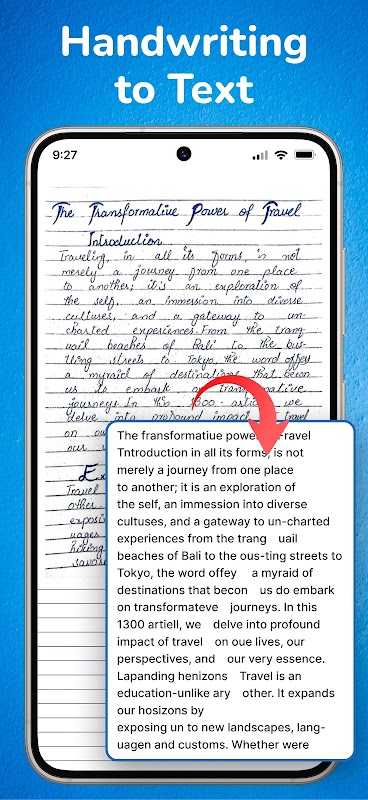 Handwriting
to Text
9:27
The Transformative Power of Travel
Introduction
Traveling, in all its forms, is not
merely a journey from one place
to another; it is an exploration of
the self, an immersion into diverse
cultures, and a gateway to un-
charted experiences. From the trang
uail beaches of Bali to the bus-
tling streets to Tokyo, the word offey
a myraid of destinations that becon
us to embark on transformative
journeys. In the 1300-artic we
delve into profound impact travel
on ou
our
Ex
Travel
other.
exposi
uages
The fransformatiue power -ravel
Tntroduction in all its forms, is not
merely a journey from one place
to another; it is an exploration of
the self, an immession into diverse
cultuses, and a gateway to un-charted
experiences from the trang uail
beaches of Bali to the ous-ting streets to
Tokyo, the word offey a myraid of
destinations that becon us do embark
on transformateve journeys. In this
1300 artiell, we delve into profound
impact of travel on oue lives, our
perspectives, and our very essence.
Lapanding henizons Travel is an
education-unlike ary other. It expands
our hosizons by
exposing un to new landscapes, lang-
uagen and customs. Whether were